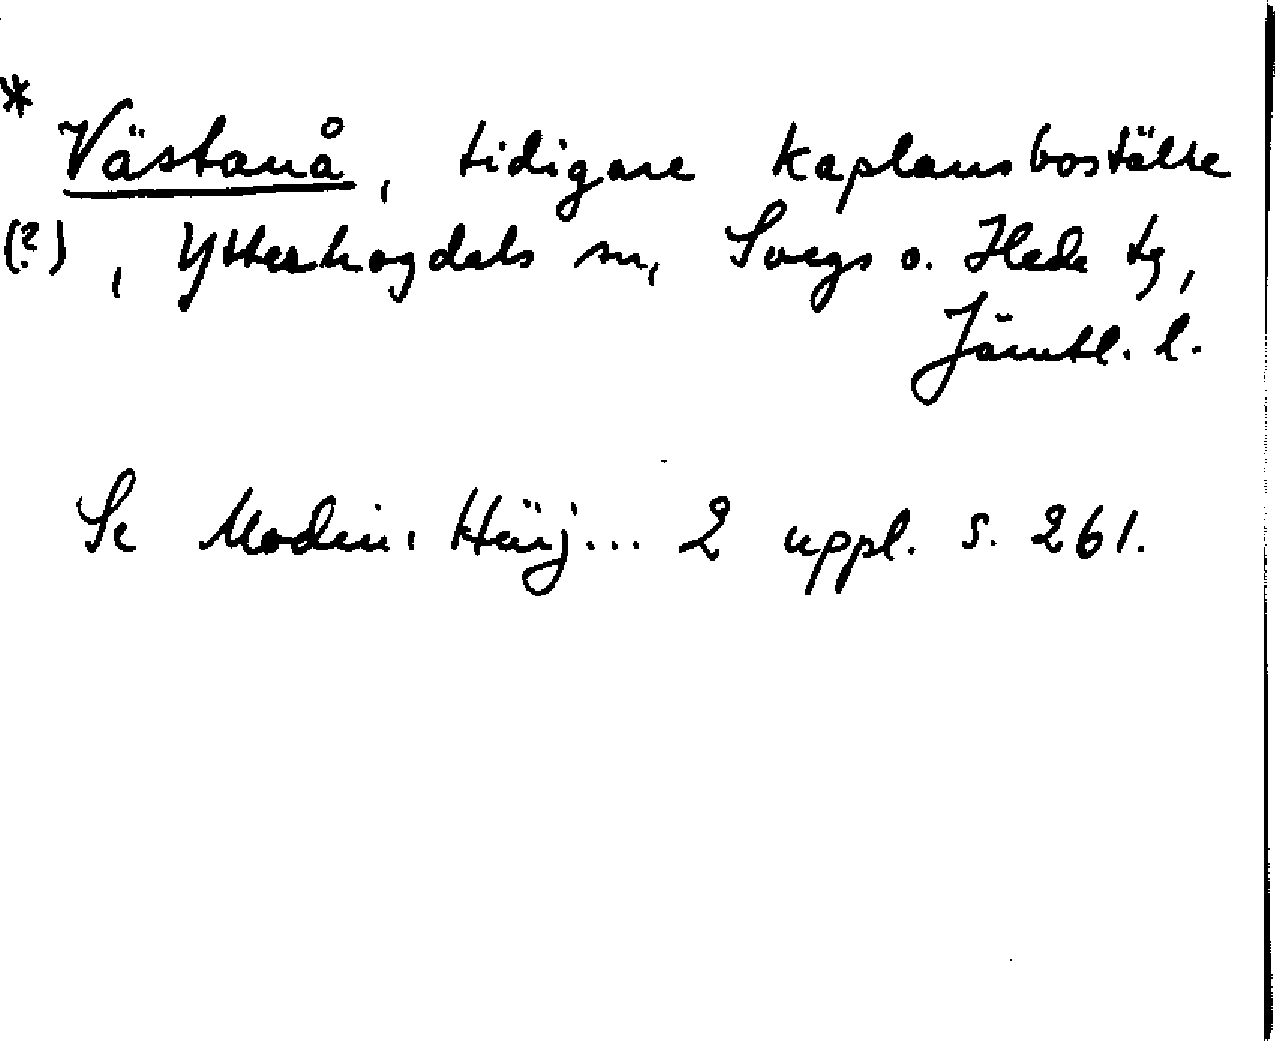 *
Västanå, tidigare kaplansboställe
(?), Ytterhogdals sn, Svegs o. Hede tg,
Jämtl. l.
Se Modin, Härj... 2 uppl. s. 261.